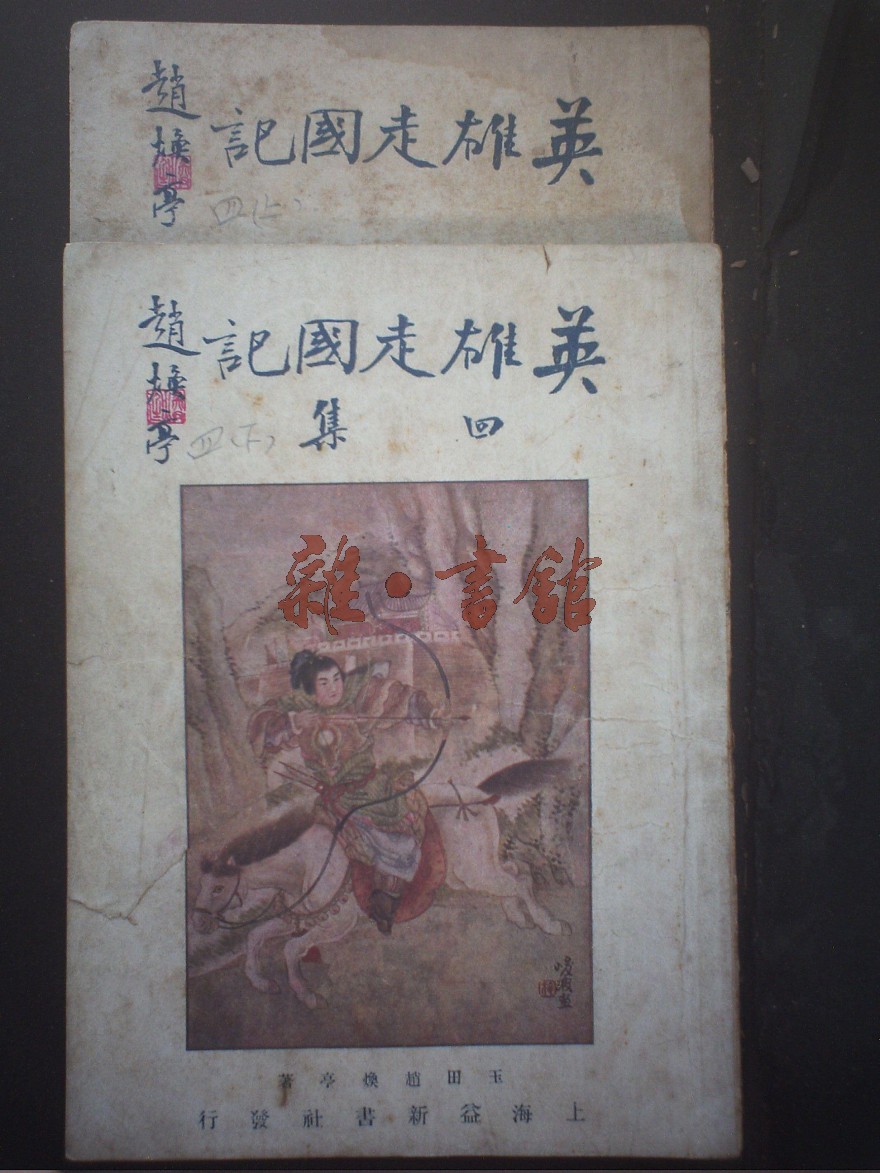 英雄走國記
趙煥亭
四(上)
英雄走國記
四集
趙煥亭
四(下)
雜·書館
玉田趙煥亭著
上海益新書社發行